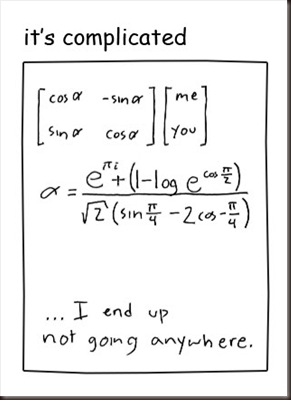 it's complicated
[cos α -sin α] [me]
[sin α cos α] [you]
α = e^{πi} + (1-log e^{cos π/2}) / √2 (sin π/4 - 2 cos -π/4)
... I end up
not going anywhere.